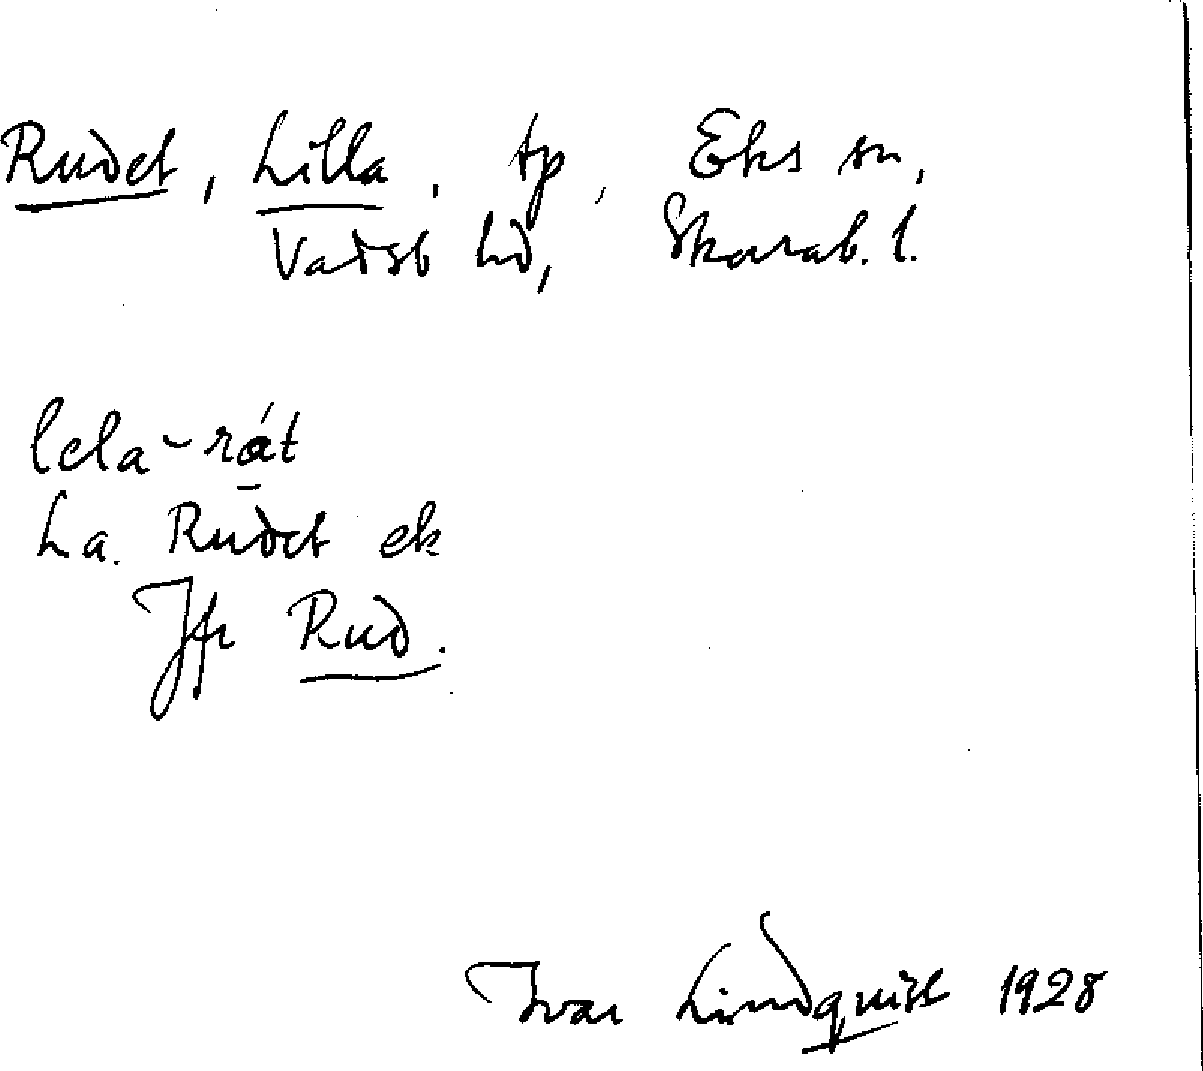 Rudet, Lilla, tp, Eks sn,
Vadsb hd, Skarab. l.
lela-rát
La. Rudet ek
Jfr Rud.
Ivar Lindquist 1928